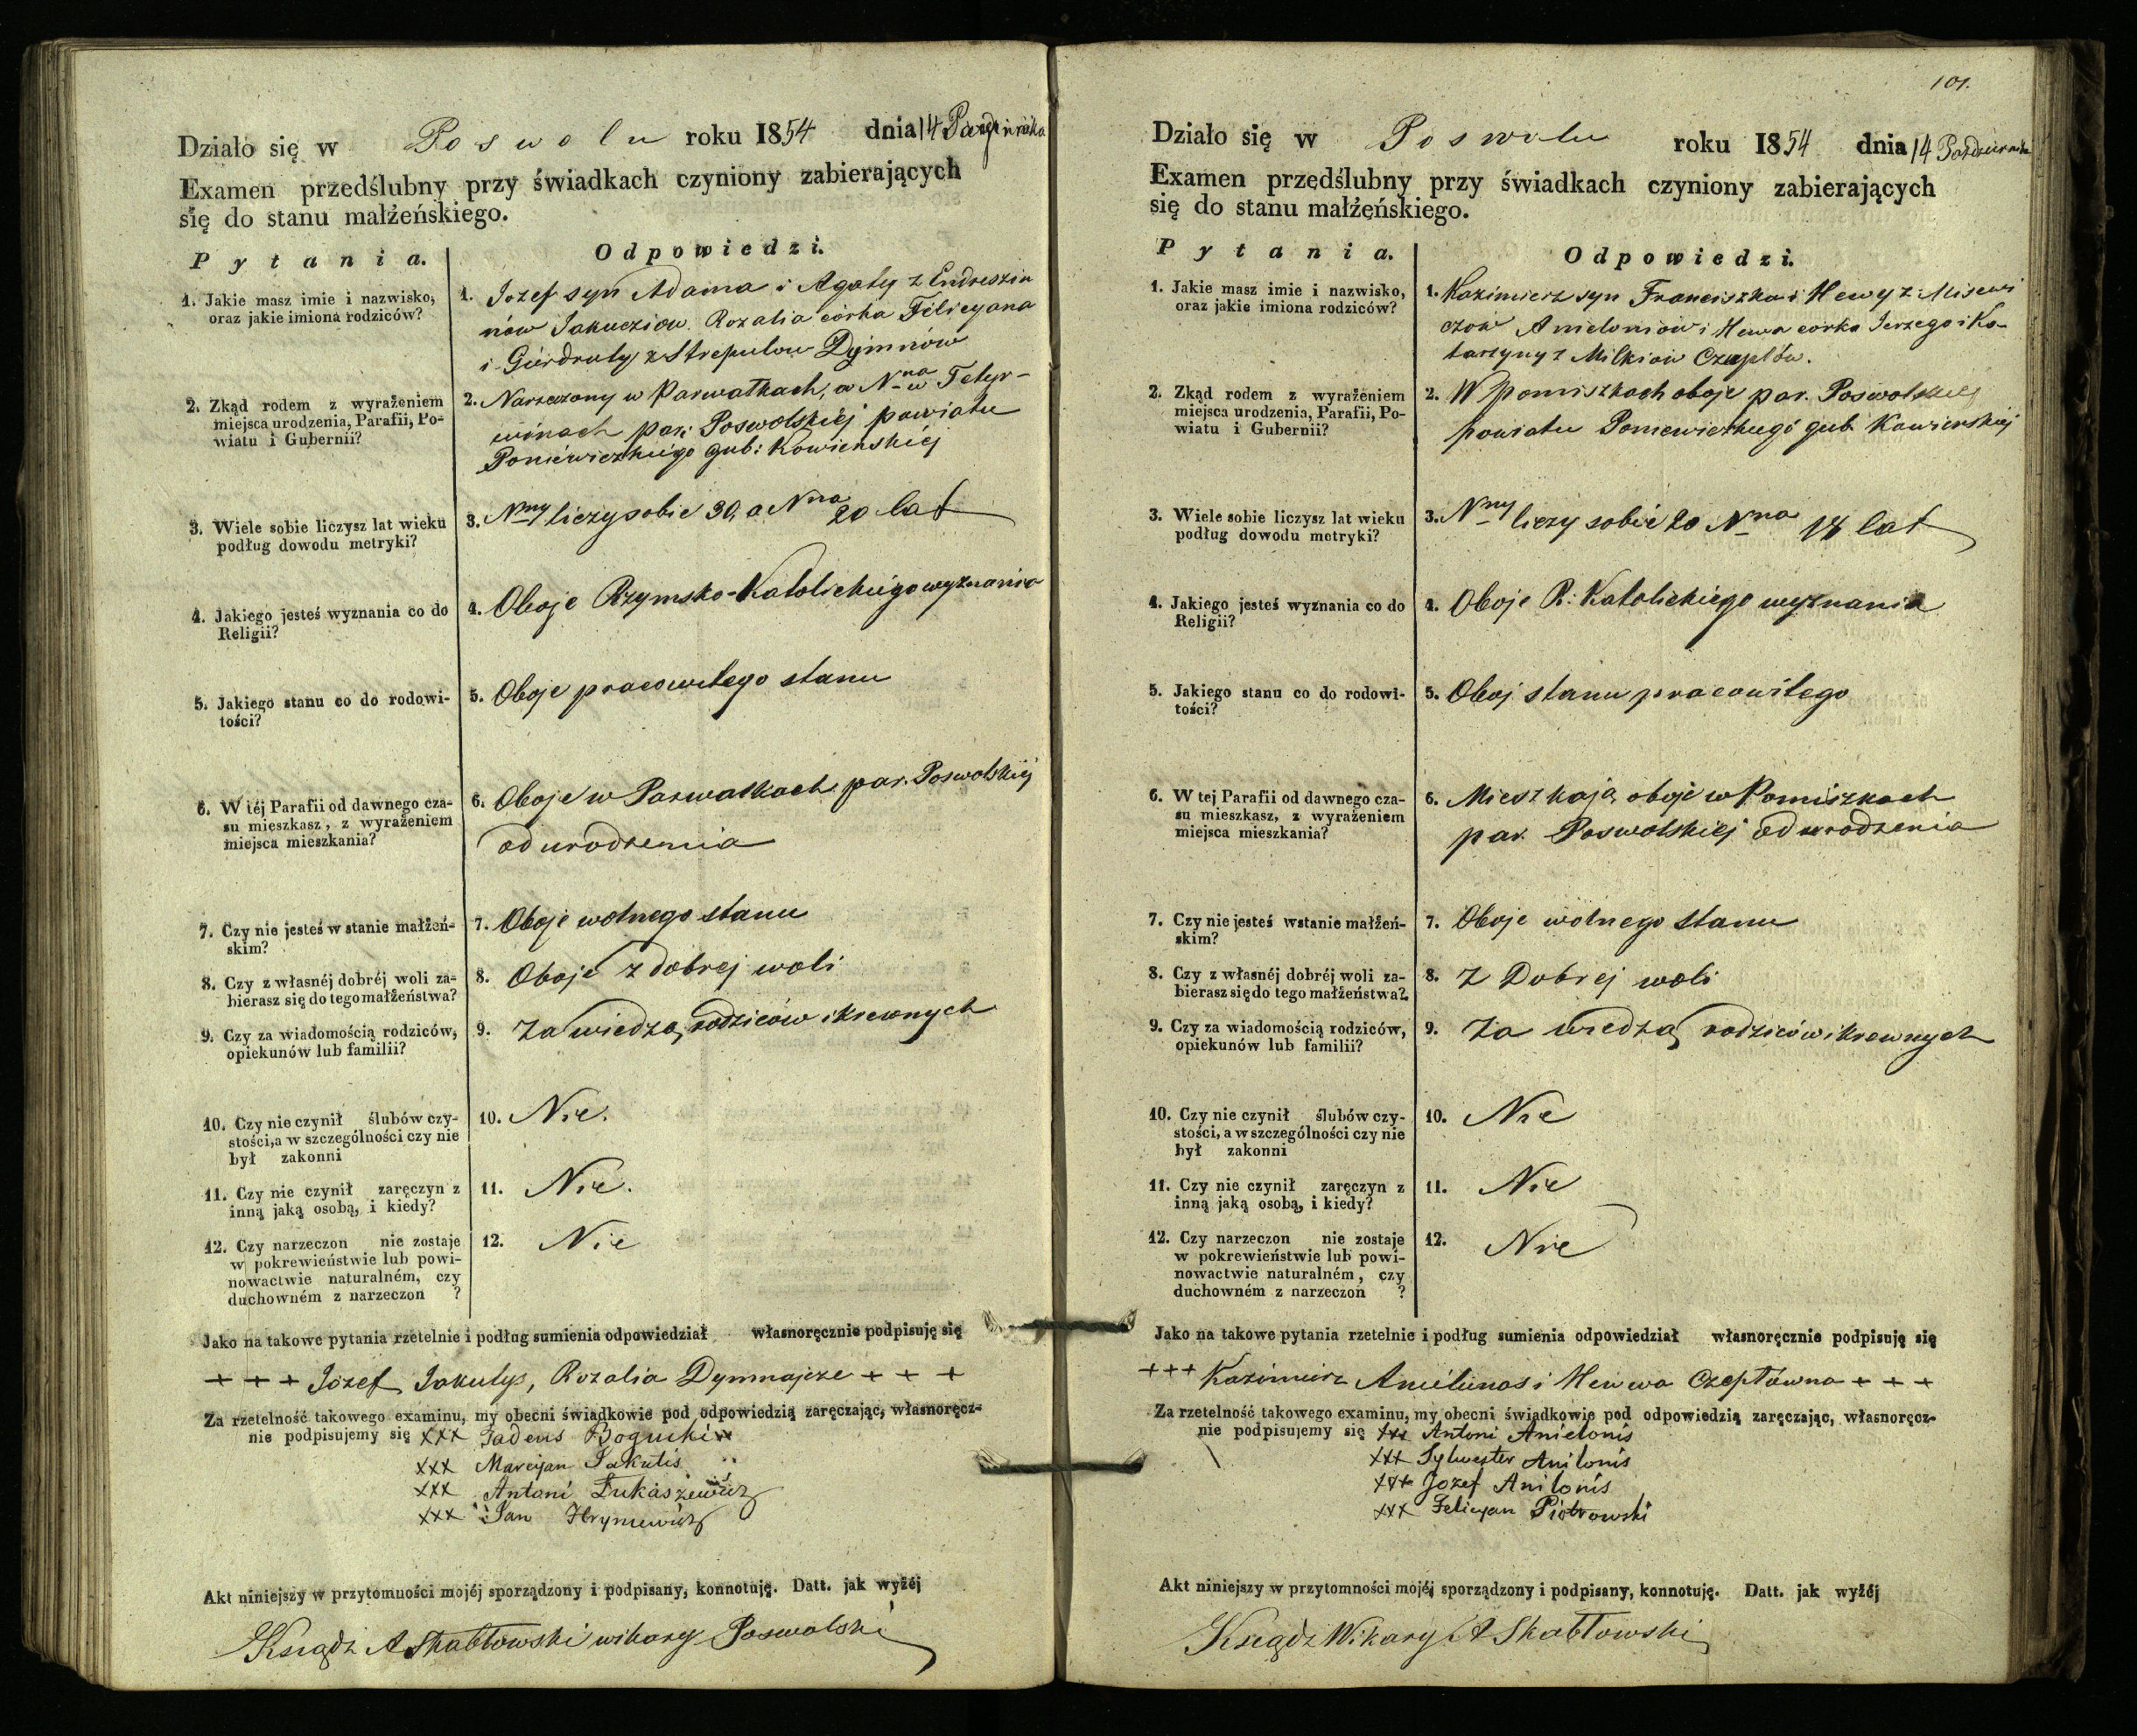 Działo się w Poswolu roku 1854 dnia 14 Października
Examen przedślubny przy świadkach czyniony zabierających
się do stanu małżeńskiego.
Pytania.
Odpowiedzi.
1. Jakie masz imie i nazwisko,
oraz jakie imiona rodziców?
1. Jozef syn Adama i Agaty z Endreszia
nów Jakucziow. Rozalia córka Felicyana
i Gierdruty z Strepulow Dymnów
2. Zkąd rodem z wyrażeniem
miejsca urodzenia, Parafii, Po-
wiatu i Gubernii?
2. Narzeczony w Parwatkach, a Nna w Tetyr-
winach par: Poswolskiéj powiatu
Poniéwiezkiégo gub: Kowieńskiéj
3. Wiele sobie liczysz lat wieku
podług dowodu metryki?
3. Nny liczy sobie 30, a Nna 20 lat
4. Jakiego jesteś wyznania co do
Religii?
4. Oboje Rzymsko-Katolickiégo wyznania
5. Jakiego stanu co do rodowi-
tości?
5. Oboje pracowitego stanu
6. W téj Parafii od dawnego cza-
su mieszkasz, z wyrażeniem
miejsca mieszkania?
6. Oboje w Parwatkach par. Poswolskiéj
od urodzenia
7. Czy nie jesteś w stanie małżeń-
skim?
7. Oboje wolnego stanu
8. Czy z własnéj dobréj woli za-
bierasz się do tego małżeństwa?
8. Oboje z dobrej woli
9. Czy za wiadomością rodziców,
opiekunów lub familii?
9. Za wiedzą rodziców i krewnych
10. Czy nie czynił ślubów czy-
stości, a w szczególności czy nie
był zakonni
10. Nie.
11. Czy nie czynił zaręczyn z
inną jaką osobą, i kiedy?
11. Nie.
12. Czy narzeczon nie zostaje
w pokrewieństwie lub powi-
nowactwie naturalném, czy
duchowném z narzeczon ?
12. Nie
Jako na takowe pytania rzetelnie i podług sumienia odpowiedział własnoręcznie podpisuję się
+ + + Józef Jakutys, Rozalia Dymnajcze + + +
Za rzetelność takowego examinu, my obecni świadkowie pod odpowiedzią zaręczając, własnoręcz-
nie podpisujemy się xxx Tadeus Bogucki
xxx Marcyan Jakutis
xxx Antoni Łukaszewicz
xxx Jan Hryniewicz
Akt niniejszy w przytomności mojéj sporządzony i podpisany, konnotuję. Datt. jak wyżéj
Ksiądz A Skabłowski wikary Poswolski
101.
Działo się w Poswolu roku 1854 dnia 14 Października
Examen przedślubny przy świadkach czyniony zabierających
się do stanu małżeńskiego.
Pytania.
Odpowiedzi.
1. Jakie masz imie i nazwisko,
oraz jakie imiona rodziców?
1. Kazimierz syn Franciszka i Hewy z Misewi
czow Anieloniów i Hewa corka Jerzego i Ka-
tarzyny z Milkiow Czeplów.
2. Zkąd rodem z wyrażeniem
miejsca urodzenia, Parafii, Po-
wiatu i Gubernii?
2. W Pomiszkach oboje par. Poswolskiéj
powiatu Poniewiezkiego gub. Kowienskiéj
3. Wiele sobie liczysz lat wieku
podług dowodu metryki?
3. Nny liczy sobie 20 Nna 18 lat
4. Jakiego jesteś wyznania co do
Religii?
4. Oboje R: Katolickiego wyznania
5. Jakiego stanu co do rodowi-
tości?
5. Oboj stanu pracowitego
6. W tej Parafii od dawnego cza-
su mieszkasz, z wyrażeniem
miejsca mieszkania?
6. Mieszkają oboje w Pomiszkach
par. Poswolskiéj od urodzenia
7. Czy nie jesteś wstanie małżeń-
skim?
7. Oboje wolnego stanu
8. Czy z własnéj dobréj woli za-
bierasz się do tego małżeństwa?
8. Z Dobrej woli
9. Czy za wiadomością rodziców,
opiekunów lub familii?
9. Za wiedzą rodziców i krewnych
10. Czy nie czynił ślubów czy-
stości, a w szczególności czy nie
był zakonni
10. Nie
11. Czy nie czynił zaręczyn z
inną jaką osobą, i kiedy?
11. Nie
12. Czy narzeczon nie zostaje
w pokrewieństwie lub powi-
nowactwie naturalném, czy
duchowném z narzeczon ?
12. Nie
Jako na takowe pytania rzetelnie i podług sumienia odpowiedział własnoręcznie podpisuję się
+++ Kazimierz Anielunas i Hewa Czeplówna + + +
Za rzetelność takowego examinu, my obecni świadkowie pod odpowiedzią zaręczając, własnoręcz-
nie podpisujemy się xxx Antoni Anielonis
xxx Sylwester Anilonis
xxx Jozef Anilonis
xxx Felicyan Piotrowski
Akt niniejszy w przytomności mojéj sporządzony i podpisany, konnotuję. Datt. jak wyżéj
Ksiądz Wikary A Skabłowski